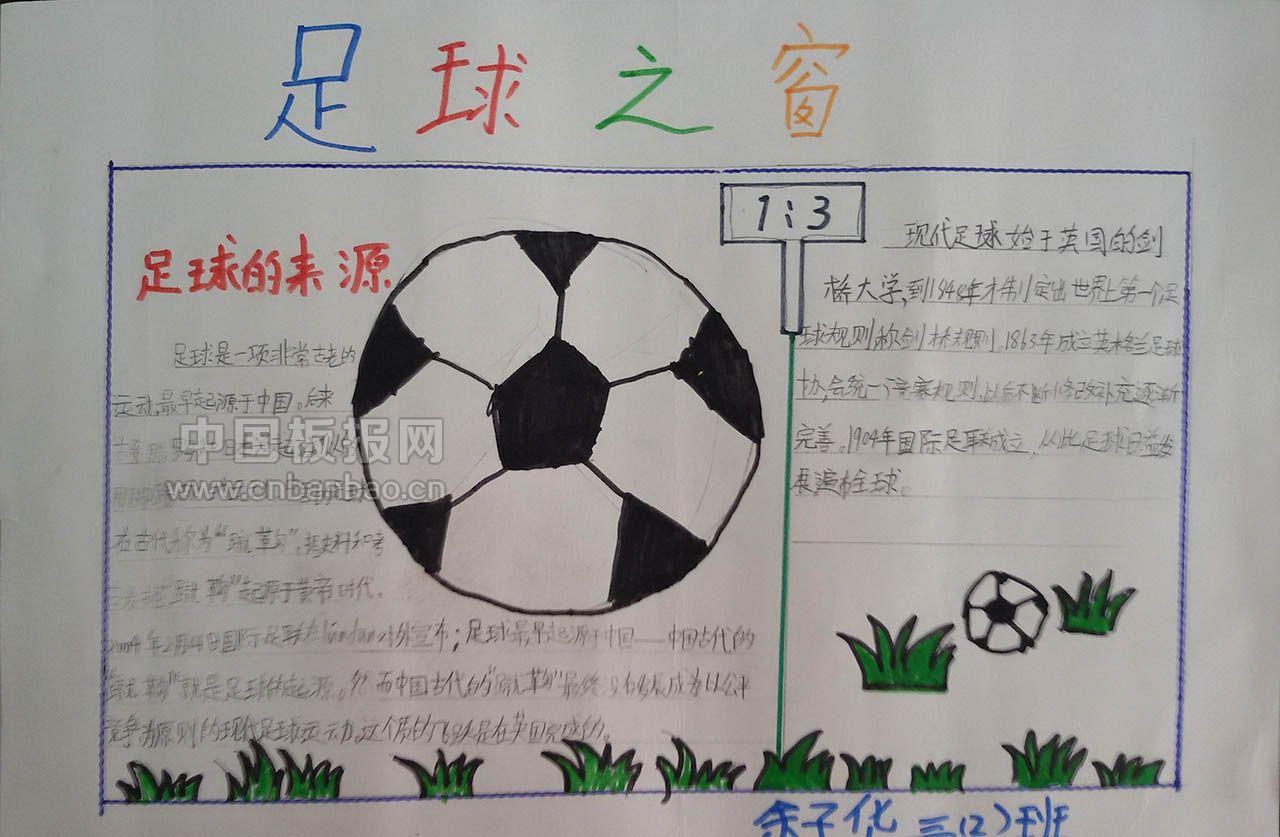 足球之窗
足球的来源
足球是一项非常古老的
运动,最早起源于中国。后来
在古代称为“蹴鞠”。据史料和考
“蹴鞠”起源于黄帝时代。
2004年2月4日国际足联在London对外宣布;足球最早起源于中国——中国古代的
“蹴鞠”就是足球的起源。然而中国古代的“蹴鞠”最终没有发展成为以公平
竞争为原则的现代足球运动。这个质的飞跃是在英国完成的。
1:3
现代足球始于英国的剑
桥大学,到1848年才制定出世界上第一个足
球规则称剑桥规则。1863年成立英格兰足球
协会统一了竞赛规则,以后不断修改补充逐渐
完善。1904年国际足联成立,从此足球日益发
展遍布全球。
余子伦 三(2)班
中国板报网
www.cnbanbao.cn